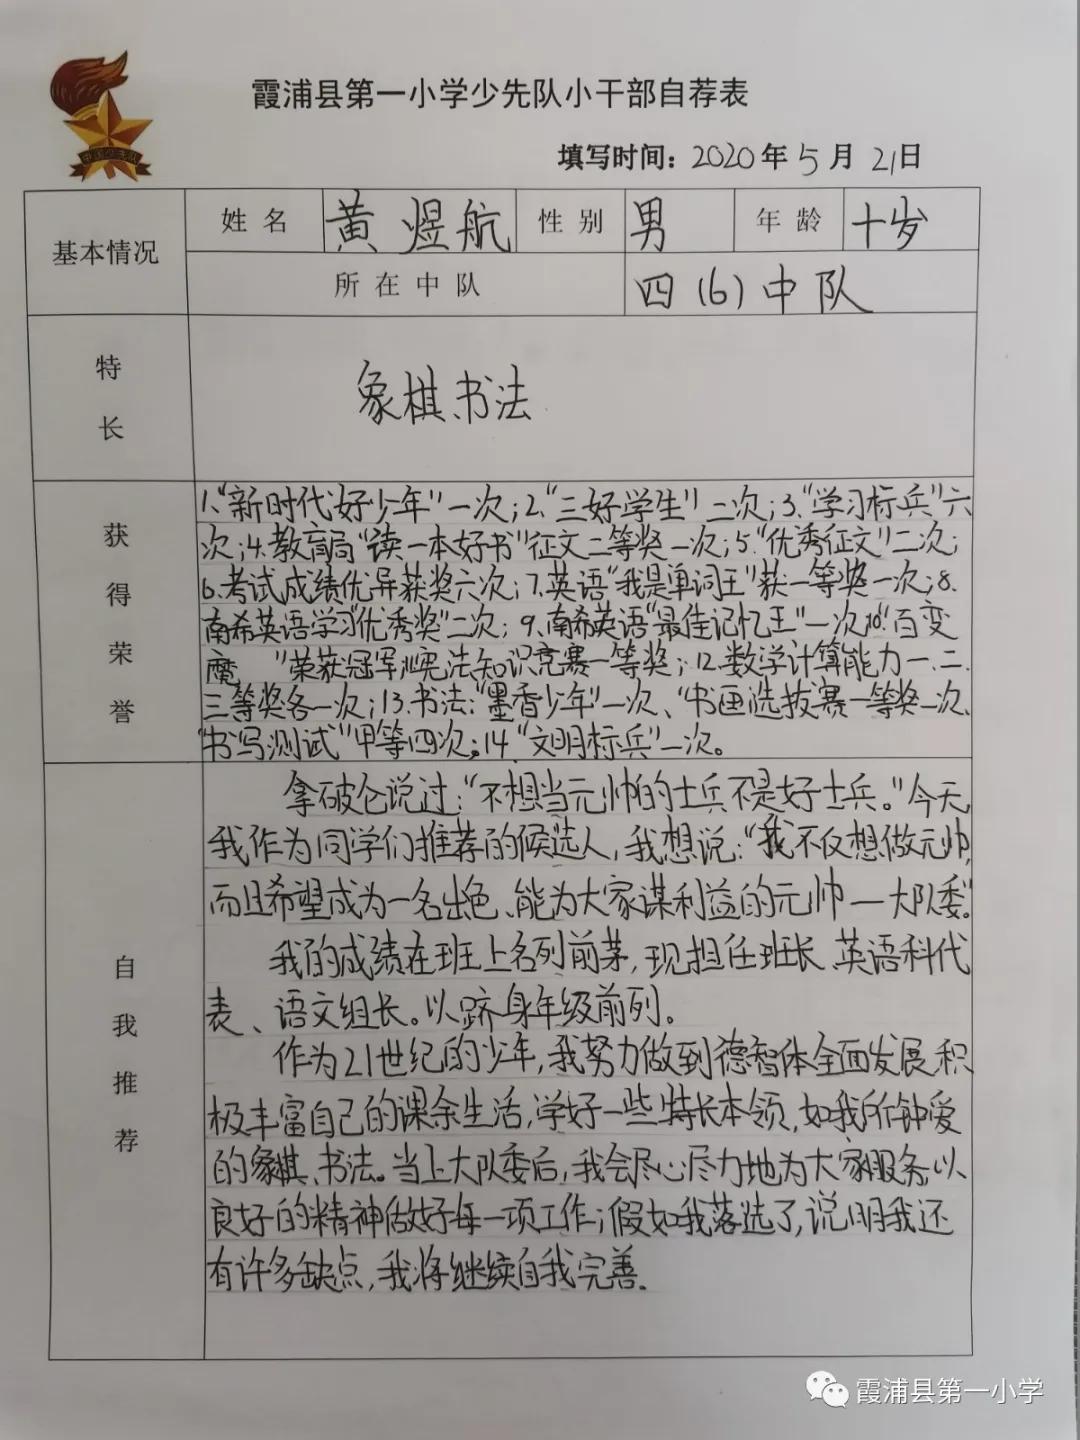 中国少先队
霞浦县第一小学少先队小干部自荐表
填写时间：2020年5月21日
基本情况
姓名 黄煜航 性别 男 年龄 十岁
所在中队 四(6)中队
特长
象棋、书法
获得荣誉
1.“新时代好少年”一次；2.“三好学生”二次；3.“学习标兵”六
次；4.教育局“读一本好书”征文二等奖一次；5.“优秀征文”二次；
6.考试成绩优异获奖六次；7.英语“我是单词王”获一等奖一次；8.
南希英语学习“优秀奖”二次；9.南希英语“最佳记忆王”一次10.“百变
魔 ”荣获冠军；11.宪法知识竞赛一等奖；12.数学计算能力一.二.
三等奖各一次；13.书法：“墨香少年”一次、“书画选拔赛一等奖一次、
“书写测试”甲等四次。14.“文明标兵”一次。
自我推荐
拿破仑说过：“不想当元帅的士兵不是好士兵。”今天，
我作为同学们推荐的候选人，我想说：“我不仅想做元帅，
而且希望成为一名出色、能为大家谋利益的元帅—大队委。”
我的成绩在班上名列前茅，现担任班长、英语科代
表、语文组长。以跻身年级前列。
作为21世纪的少年，我努力做到德智体全面发展，积
极丰富自己的课余生活，学好一些特长本领，如我所钟爱
的象棋、书法。当上大队委后，我会尽心尽力地为大家服务，以
良好的精神做好每一项工作；假如我落选了，说明我还
有许多缺点，我将继续自我完善。
霞浦县第一小学